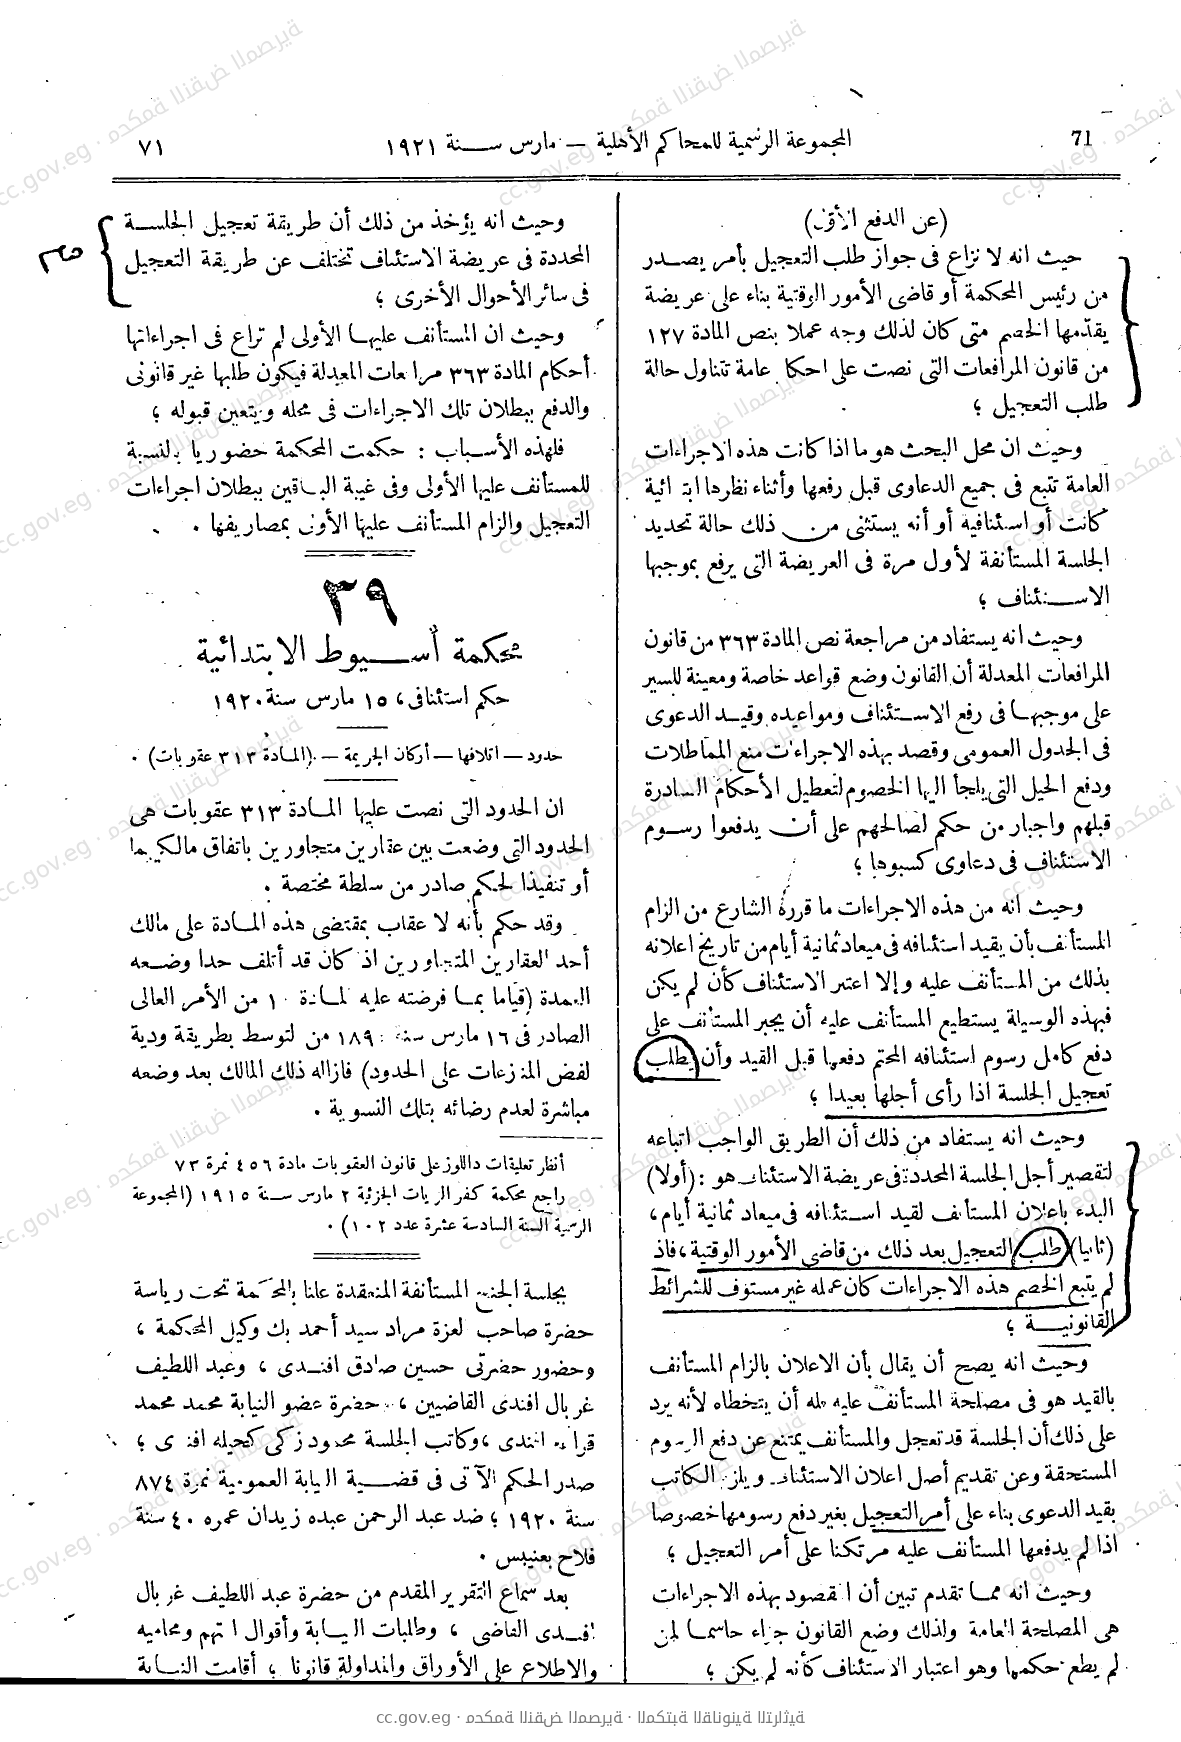 71
المجموعة الرسمية للمحاكم الأهلية — مارس سنة ١٩٢١
٧١
(عن الدفع الأول)
حيث انه لا نزاع فى جواز طلب التعجيل بأمر يصدر
من رئيس المحكمة أو قاضى الأمور الوقتية بناء على عريضة
يقدّمها الخصم متى كان لذلك وجه عملا بنص المادة ١٢٧
من قانون المرافعات التى نصت على احكام عامة تتناول حالة
طلب التعجيل ؛
وحيث ان محل البحث هو ما اذا كانت هذه الاجراءات
العامة تتبع فى جميع الدعاوى قبل رفعها وأثناء نظرها ابتدائية
كانت أو استئنافية أو أنه يستثنى من ذلك حالة تحديد
الجلسة المستأنفة لأول مرة فى العريضة التى يرفع بموجبها
الاستئناف ؛
وحيث انه يستفاد من مراجعة نص المادة ٣٦٣ من قانون
المرافعات المعدلة أن القانون وضع قواعد خاصة ومعينة للسير
على موجبها فى رفع الاستئناف ومواعيده وقيد الدعوى
فى الجدول العمومى وقصد بهذه الاجراءات منع المماطلات
ودفع الحيل التى يلجأ اليها الخصوم لتعطيل الأحكام الصادرة
قبلهم واجبار من حكم لصالحهم على أن يدفعوا رسوم
الاستئناف فى دعاوى كسبوها ؛
وحيث انه من هذه الاجراءات ما قرره الشارع من الزام
المستأنف بأن يقيد استئنافه فى ميعاد ثمانية أيام من تاريخ اعلانه
بذلك من المستأنف عليه وإلا اعتبر الاستئناف كأن لم يكن
فبهذه الوسيلة يستطيع المستأنف عليه أن يجبر المستأنف على
دفع كامل رسوم استئنافه المحتم دفعها قبل القيد وأن يطلب
تعجيل الجلسة اذا رأى أجلها بعيدا ؛
وحيث انه يستفاد من ذلك أن الطريق الواجب اتباعه
لتقصير أجل الجلسة المحددة فى عريضة الاستئناف هو : (أولا)
البدء باعلان المستأنف لقيد استئنافه فى ميعاد ثمانية أيام ،
(ثانيا) طلب التعجيل بعد ذلك من قاضى الأمور الوقتية ، فاذ
لم يتبع الخصم هذه الاجراءات كان عمله غير مستوف للشرائط
القانونية ؛
وحيث انه يصح أن يقال بأن الاعلان بالزام المستأنف
بالقيد هو فى مصلحة المستأنف عليه فله أن يتخطاه لأنه يرد
على ذلك أن الجلسة قد تعجل والمستأنف يمتنع عن دفع الرسوم
المستحقة وعن تقديم أصل اعلان الاستئناف ويلزم الكاتب
بقيد الدعوى بناء على أمر التعجيل بغير دفع رسومها خصوصا
اذا لم يدفعها المستأنف عليه مرتكنا على أمر التعجيل ؛
وحيث انه مما تقدم تبين أن المقصود بهذه الاجراءات
هى المصلحة العامة ولذلك وضع القانون جزاء حاسما لمن
لم يطع حكمها وهو اعتبار الاستئناف كأنه لم يكن ؛
وحيث انه يؤخذ من ذلك أن طريقة تعجيل الجلسة
المحددة فى عريضة الاستئناف تختلف عن طريقة التعجيل
فى سائر الأحوال الأخرى ؛
وحيث ان المستأنف عليها الأولى لم تراع فى اجراءاتها
أحكام المادة ٣٦٣ مرافعات المعدلة فيكون طلبها غير قانونى
والدفع ببطلان تلك الاجراءات فى محله ويتعين قبوله ؛
فلهذه الأسباب : حكمت المحكمة حضوريا بالنسبة
للمستأنف عليها الأولى وفى غيبة الباقين ببطلان اجراءات
التعجيل والزام المستأنف عليها الأولى بمصاريفها .
٣٩
محكمة أسيوط الابتدائية
حكم استئنافى ، ١٥ مارس سنة ١٩٢٠
حدود — اتلافها — أركان الجريمة — (المادة ٣١٣ عقوبات) .
ان الحدود التى نصت عليها المادة ٣١٣ عقوبات هى
الحدود التى وضعت بين عقارين متجاورين باتفاق مالكيهما
أو تنفيذا لحكم صادر من سلطة مختصة .
وقد حكم بأنه لا عقاب بمقتضى هذه المادة على مالك
أحد العقارين المتجاورين اذ كان قد أتلف حدا وضعه
العمدة (قياما بما فرضته عليه المادة ١٠ من الأمر العالى
الصادر فى ١٦ مارس سنة ١٨٩٠ من التوسط بطريقة ودية
لفض المنازعات على الحدود) فازاله ذلك المالك بعد وضعه
مباشرة لعدم رضائه بتلك التسوية .
أنظر تعليقات داللوز على قانون العقوبات مادة ٤٥٦ نمرة ٧٣
راجع محكمة كفر الزيات الجزئية ٢ مارس سنة ١٩١٥ (المجموعة
الرسمية السنة السادسة عشرة عدد ١٠٢) .
بجلسة الجنح المستأنفة المنعقدة علنا بالمحكمة تحت رياسة
حضرة صاحب العزة مراد سيد أحمد بك وكيل المحكمة ،
وحضور حضرتى حسين صادق افندى ، وعبد اللطيف
غربال افندى القاضيين ، وحضرة عضو النيابة محمد محمد
قراعه افندى ، وكاتب الجلسة محمود زكى كحيله افندى ؛
صدر الحكم الآتى فى قضية النيابة العمومية نمرة ٨٧٤
سنة ١٩٢٠ ؛ ضد عبد الرحمن عبده زيدان عمره ٤٠ سنة
فلاح بعنيبس .
بعد سماع التقرير المقدم من حضرة عبد اللطيف غربال
افندى القاضى ، وطلبات النيابة وأقوال المتهم ومحاميه
والاطلاع على الأوراق والمداولة قانونا ؛ أقامت النيابة
cc.gov.eg · محكمة النقض المصرية · المكتبة القانونية التراثية